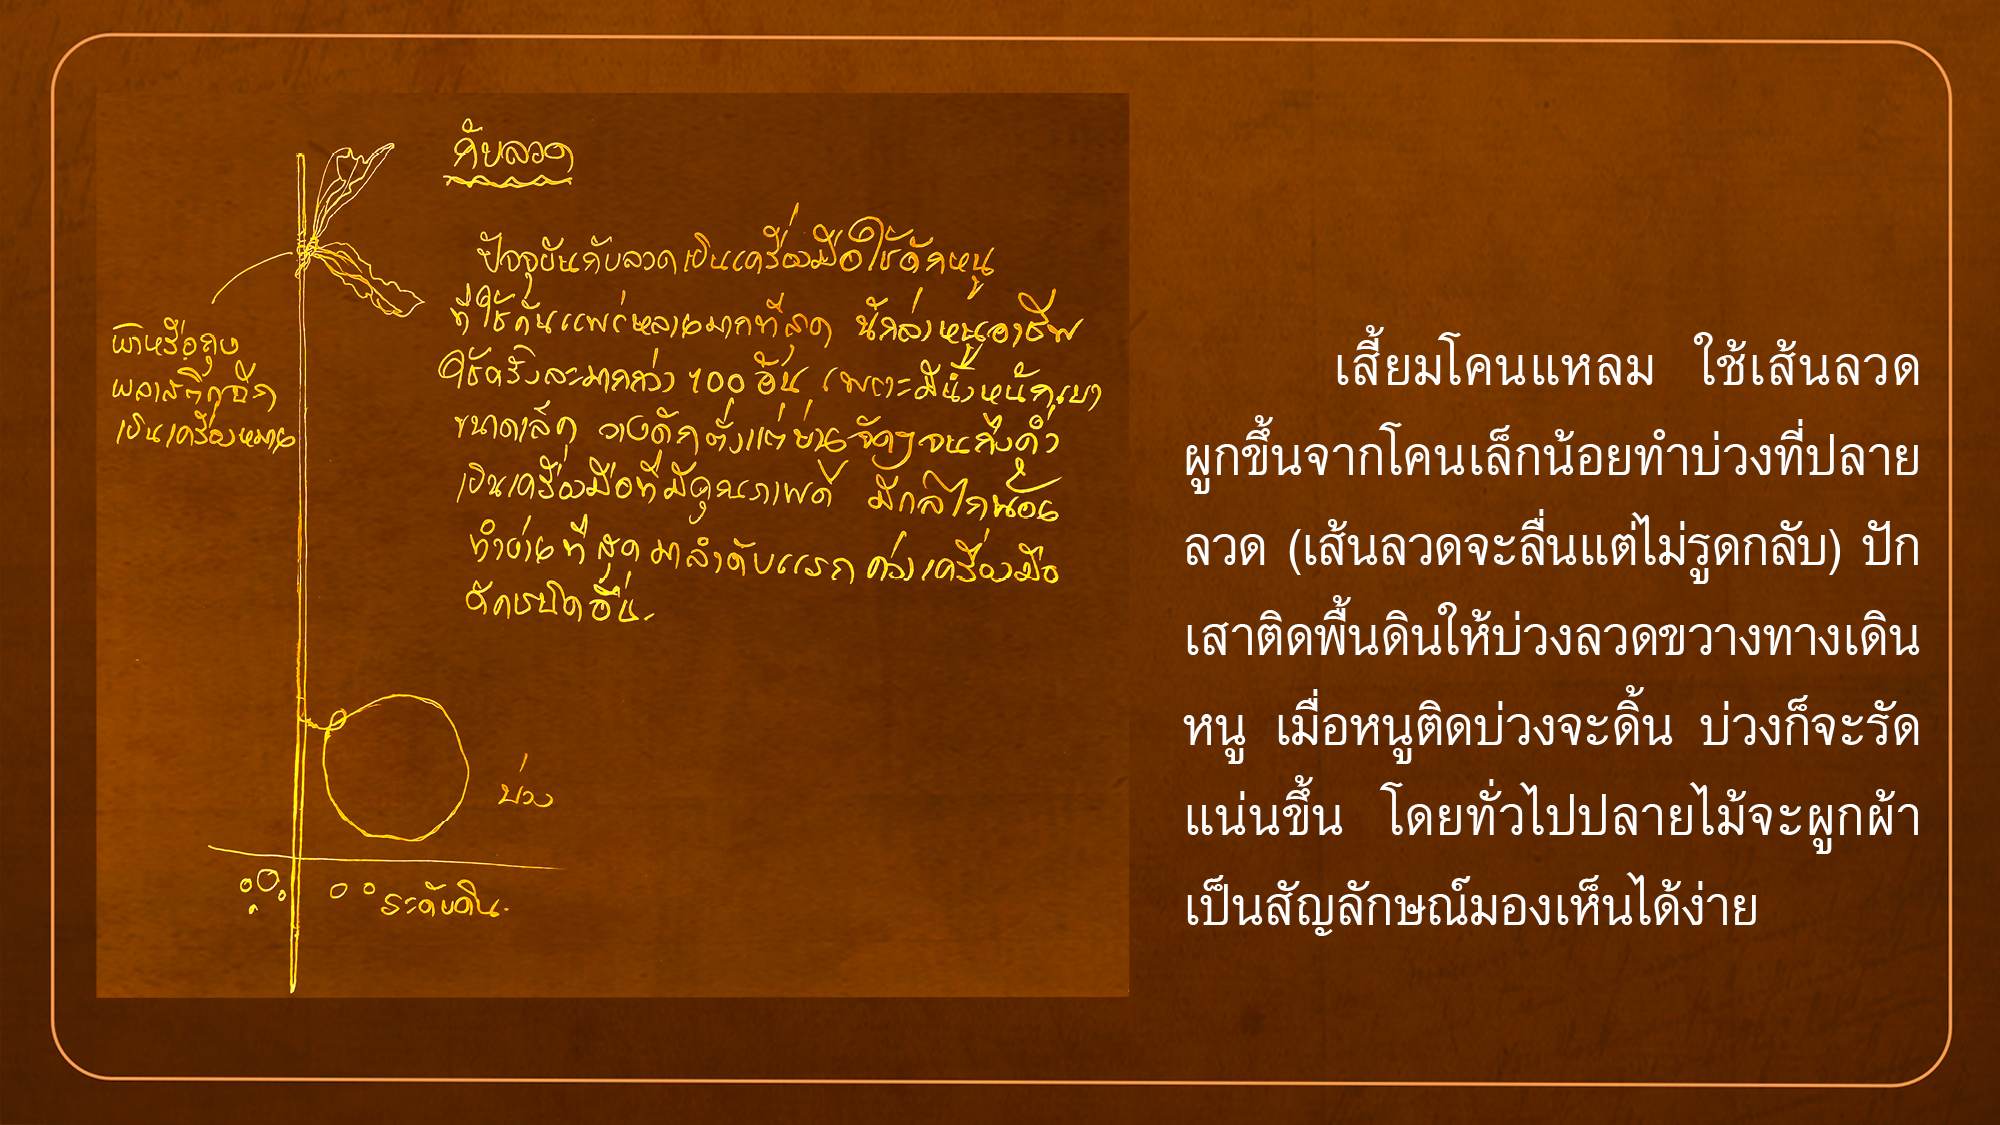 กับลวด
ปัจจุบันกับลวดเป็นเครื่องมือใช้ดักหนู
ที่ใช้กันแพร่หลายมากที่สุด นักล่าหนูอาชีพ
ใช้ครั้งละมากกว่า 100 อัน เพราะมีน้ำหนักเบา
ขนาดเล็ก วางดักตั้งแต่บ่ายจัดๆจนถึงค่ำ
เป็นเครื่องมือที่มีคุณภาพดี มีกลไกน้อย
ทำง่ายที่สุด มาลำดับแรก กว่าเครื่องมือ
ดักชนิดอื่น.
ผ้าหรือถุง
พลาสติกฉีก
เป็นเครื่องหมาย
บ่วง
ระดับดิน.
เสี้ยมโคนแหลม ใช้เส้นลวด
ผูกขึ้นจากโคนเล็กน้อยทำบ่วงที่ปลาย
ลวด (เส้นลวดจะลื่นแต่ไม่รูดกลับ) ปัก
เสาติดพื้นดินให้บ่วงลวดขวางทางเดิน
หนู เมื่อหนูติดบ่วงจะดิ้น บ่วงก็จะรัด
แน่นขึ้น โดยทั่วไปปลายไม้จะผูกผ้า
เป็นสัญลักษณ์มองเห็นได้ง่าย